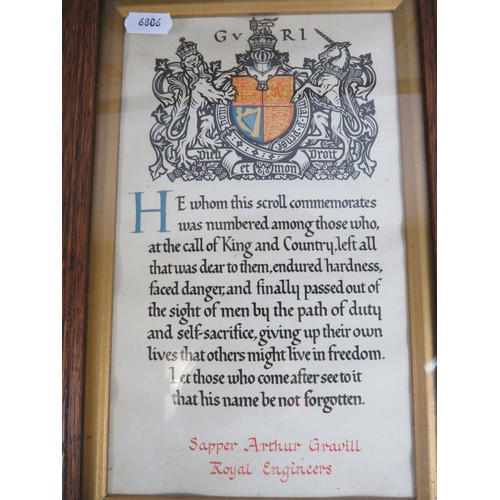 6806
G V R I
Dieu et mon Droit
HE whom this scroll commemorates
was numbered among those who,
at the call of King and Country, left all
that was dear to them, endured hardness,
faced danger, and finally passed out of
the sight of men by the path of duty
and self-sacrifice, giving up their own
lives that others might live in freedom.
Let those who come after see to it
that his name be not forgotten.
Sapper Arthur Gravill
Royal Engineers